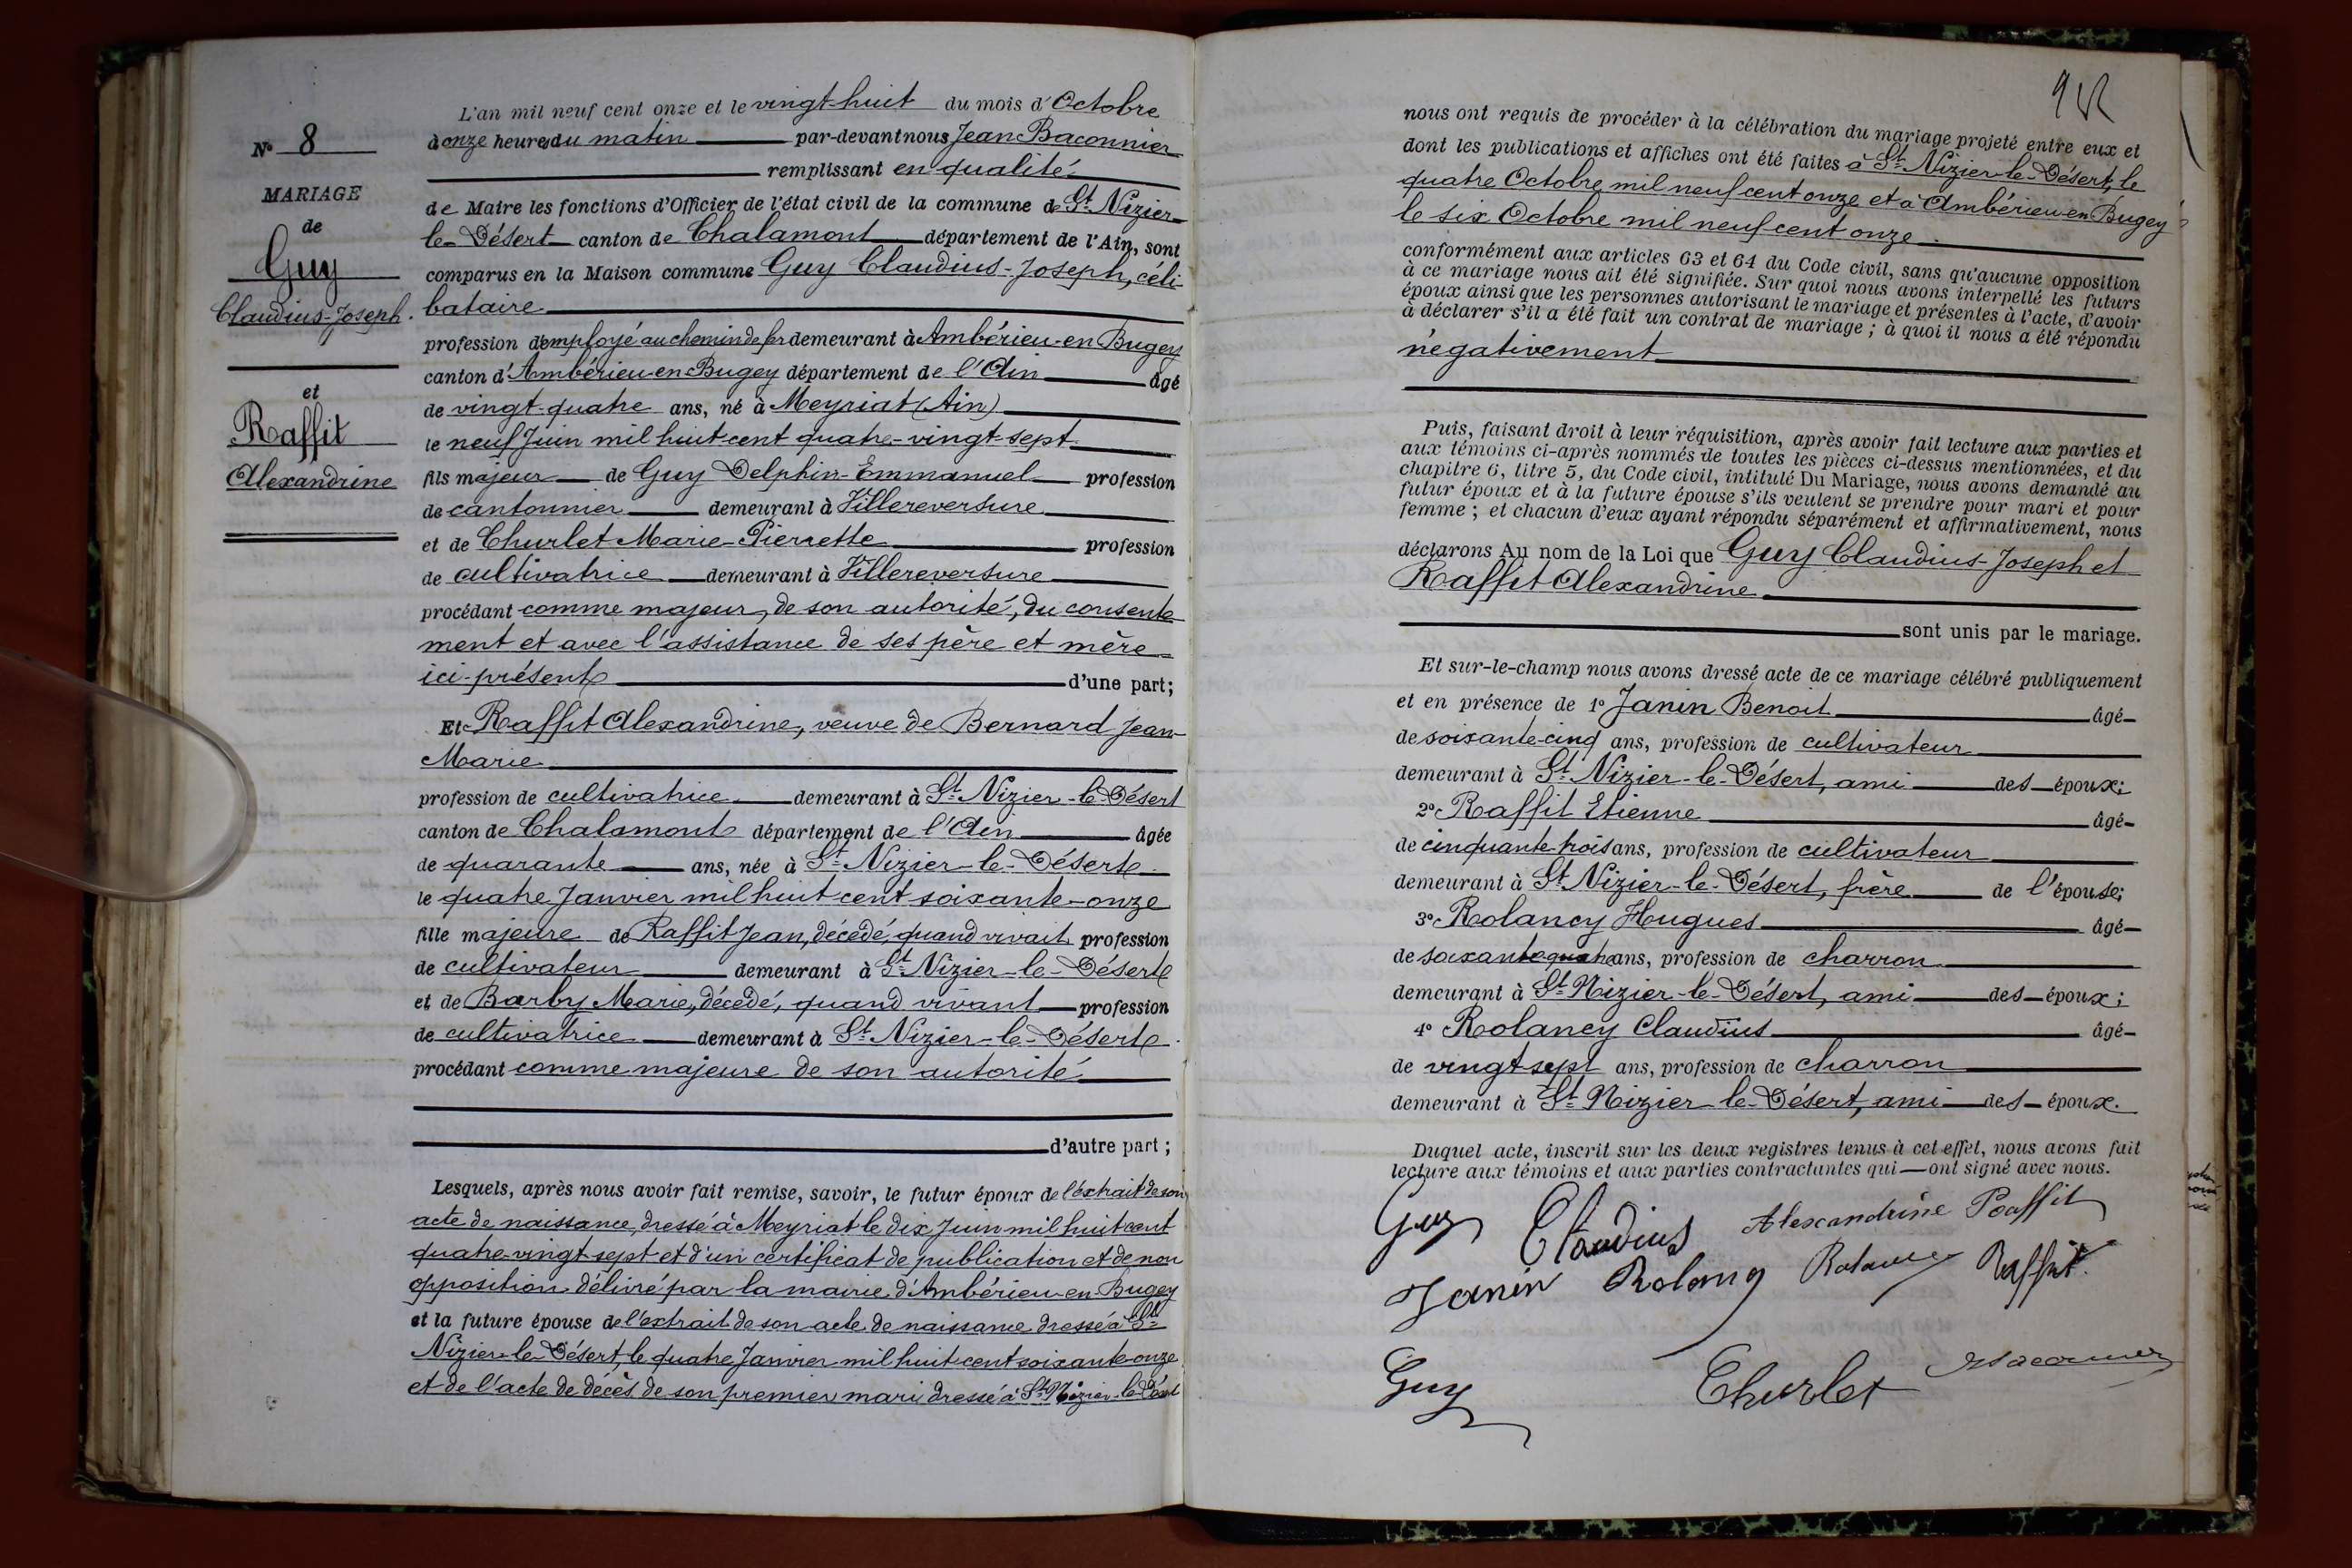 N° 8
MARIAGE
de
Guy
Claudius-Joseph.
et
Raffit
Alexandrine
L'an mil neuf cent onze et le vingt-huit du mois d'Octobre
à onze heures du matin par-devant nous Jean Baconnier
remplissant en qualité
de Maire les fonctions d'Officier de l'état civil de la commune de St. Nizier-
le-Désert canton de Chalamont département de l'Ain, sont
comparus en la Maison commune Guy Claudius-Joseph, céli-
bataire
profession d'employé au chemin de fer demeurant à Ambérieu-en-Bugey
canton d'Ambérieu-en-Bugey département de l'Ain âgé
de vingt-quatre ans, né à Meyriat (Ain)
le neuf Juin mil huit cent quatre-vingt-sept
fils majeur de Guy Delphin-Emmanuel profession
de cantonnier demeurant à Villereversure
et de Churlet Marie-Pierrette profession
de cultivatrice demeurant à Villereversure
procédant comme majeur, de son autorité, du consente
ment et avec l'assistance de ses père et mère
ici présents d'une part;
Et Raffit Alexandrine, veuve de Bernard Jean-
Marie
profession de cultivatrice demeurant à St. Nizier-le-Désert
canton de Chalamont département de l'Ain âgée
de quarante ans, née à St. Nizier-le-Désert
le quatre Janvier mil huit cent soixante-onze
fille majeure de Raffit Jean, décédé, quand vivait profession
de cultivateur demeurant à St. Nizier-le-Désert
et de Barby Marie, décédé, quand vivant profession
de cultivatrice demeurant à St. Nizier-le-Désert
procédant comme majeure de son autorité
d'autre part;
Lesquels, après nous avoir fait remise, savoir, le futur époux de l'extrait de son
acte de naissance, dressé à Meyriat le dix Juin mil huit cent
quatre-vingt-sept et d'un certificat de publication et de non
opposition délivré par la mairie d'Ambérieu-en-Bugey
et la future épouse de l'extrait de son acte de naissance dressé à St.
Nizier-le-Désert, le quatre Janvier mil huit cent soixante-onze
et de l'acte de décès de son premier mari dressé à St. Nizier-le-Désert
nous ont requis de procéder à la célébration du mariage projeté entre eux et
dont les publications et affiches ont été faites à St. Nizier-le-Désert, le
quatre Octobre mil neuf cent onze et à Ambérieu-en-Bugey
le six Octobre mil neuf cent onze
conformément aux articles 63 et 64 du Code civil, sans qu'aucune opposition
à ce mariage nous ait été signifiée. Sur quoi nous avons interpellé les futurs
époux ainsi que les personnes autorisant le mariage et présentes à l'acte, d'avoir
à déclarer s'il a été fait un contrat de mariage; à quoi il nous a été répondu
négativement
Puis, faisant droit à leur réquisition, après avoir fait lecture aux parties et
aux témoins ci-après nommés de toutes les pièces ci-dessus mentionnées, et du
chapitre 6, titre 5, du Code civil, intitulé Du Mariage, nous avons demandé au
futur époux et à la future épouse s'ils veulent se prendre pour mari et pour
femme; et chacun d'eux ayant répondu séparément et affirmativement, nous
déclarons Au nom de la Loi que Guy Claudius-Joseph et
Raffit Alexandrine
sont unis par le mariage.
Et sur-le-champ nous avons dressé acte de ce mariage célébré publiquement
et en présence de 1° Janin Benoit âgé
de soixante-cinq ans, profession de cultivateur
demeurant à St. Nizier-le-Désert, ami des époux;
2° Raffit Etienne âgé
de cinquante-trois ans, profession de cultivateur
demeurant à St. Nizier-le-Désert, frère de l'épouse;
3° Rolancy Hugues âgé
de soixante quatre ans, profession de charron
demeurant à St. Nizier-le-Désert, ami des époux;
4° Rolancy Claudius âgé
de vingt sept ans, profession de charron
demeurant à St. Nizier-le-Désert, ami des époux.
Duquel acte, inscrit sur les deux registres tenus à cet effet, nous avons fait
lecture aux témoins et aux parties contractantes qui ont signé avec nous.
Guy Claudius Alexandrine Raffit
Janin Rolancy Rolancy Raffit
Guy Churlet Baconnier